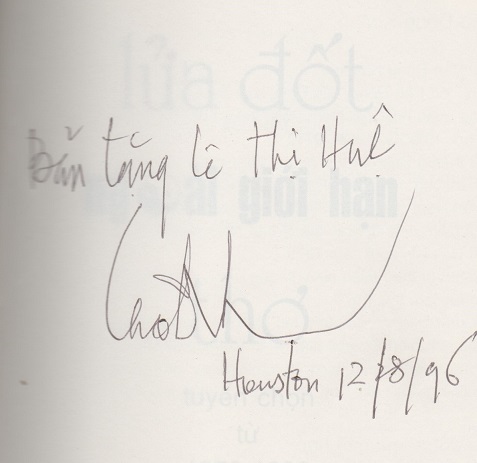 tặng Lê Thị Huệ
Houston 12/8/96
lửa đốt
ngoài giới hạn
thơ
tuyển chọn
từ